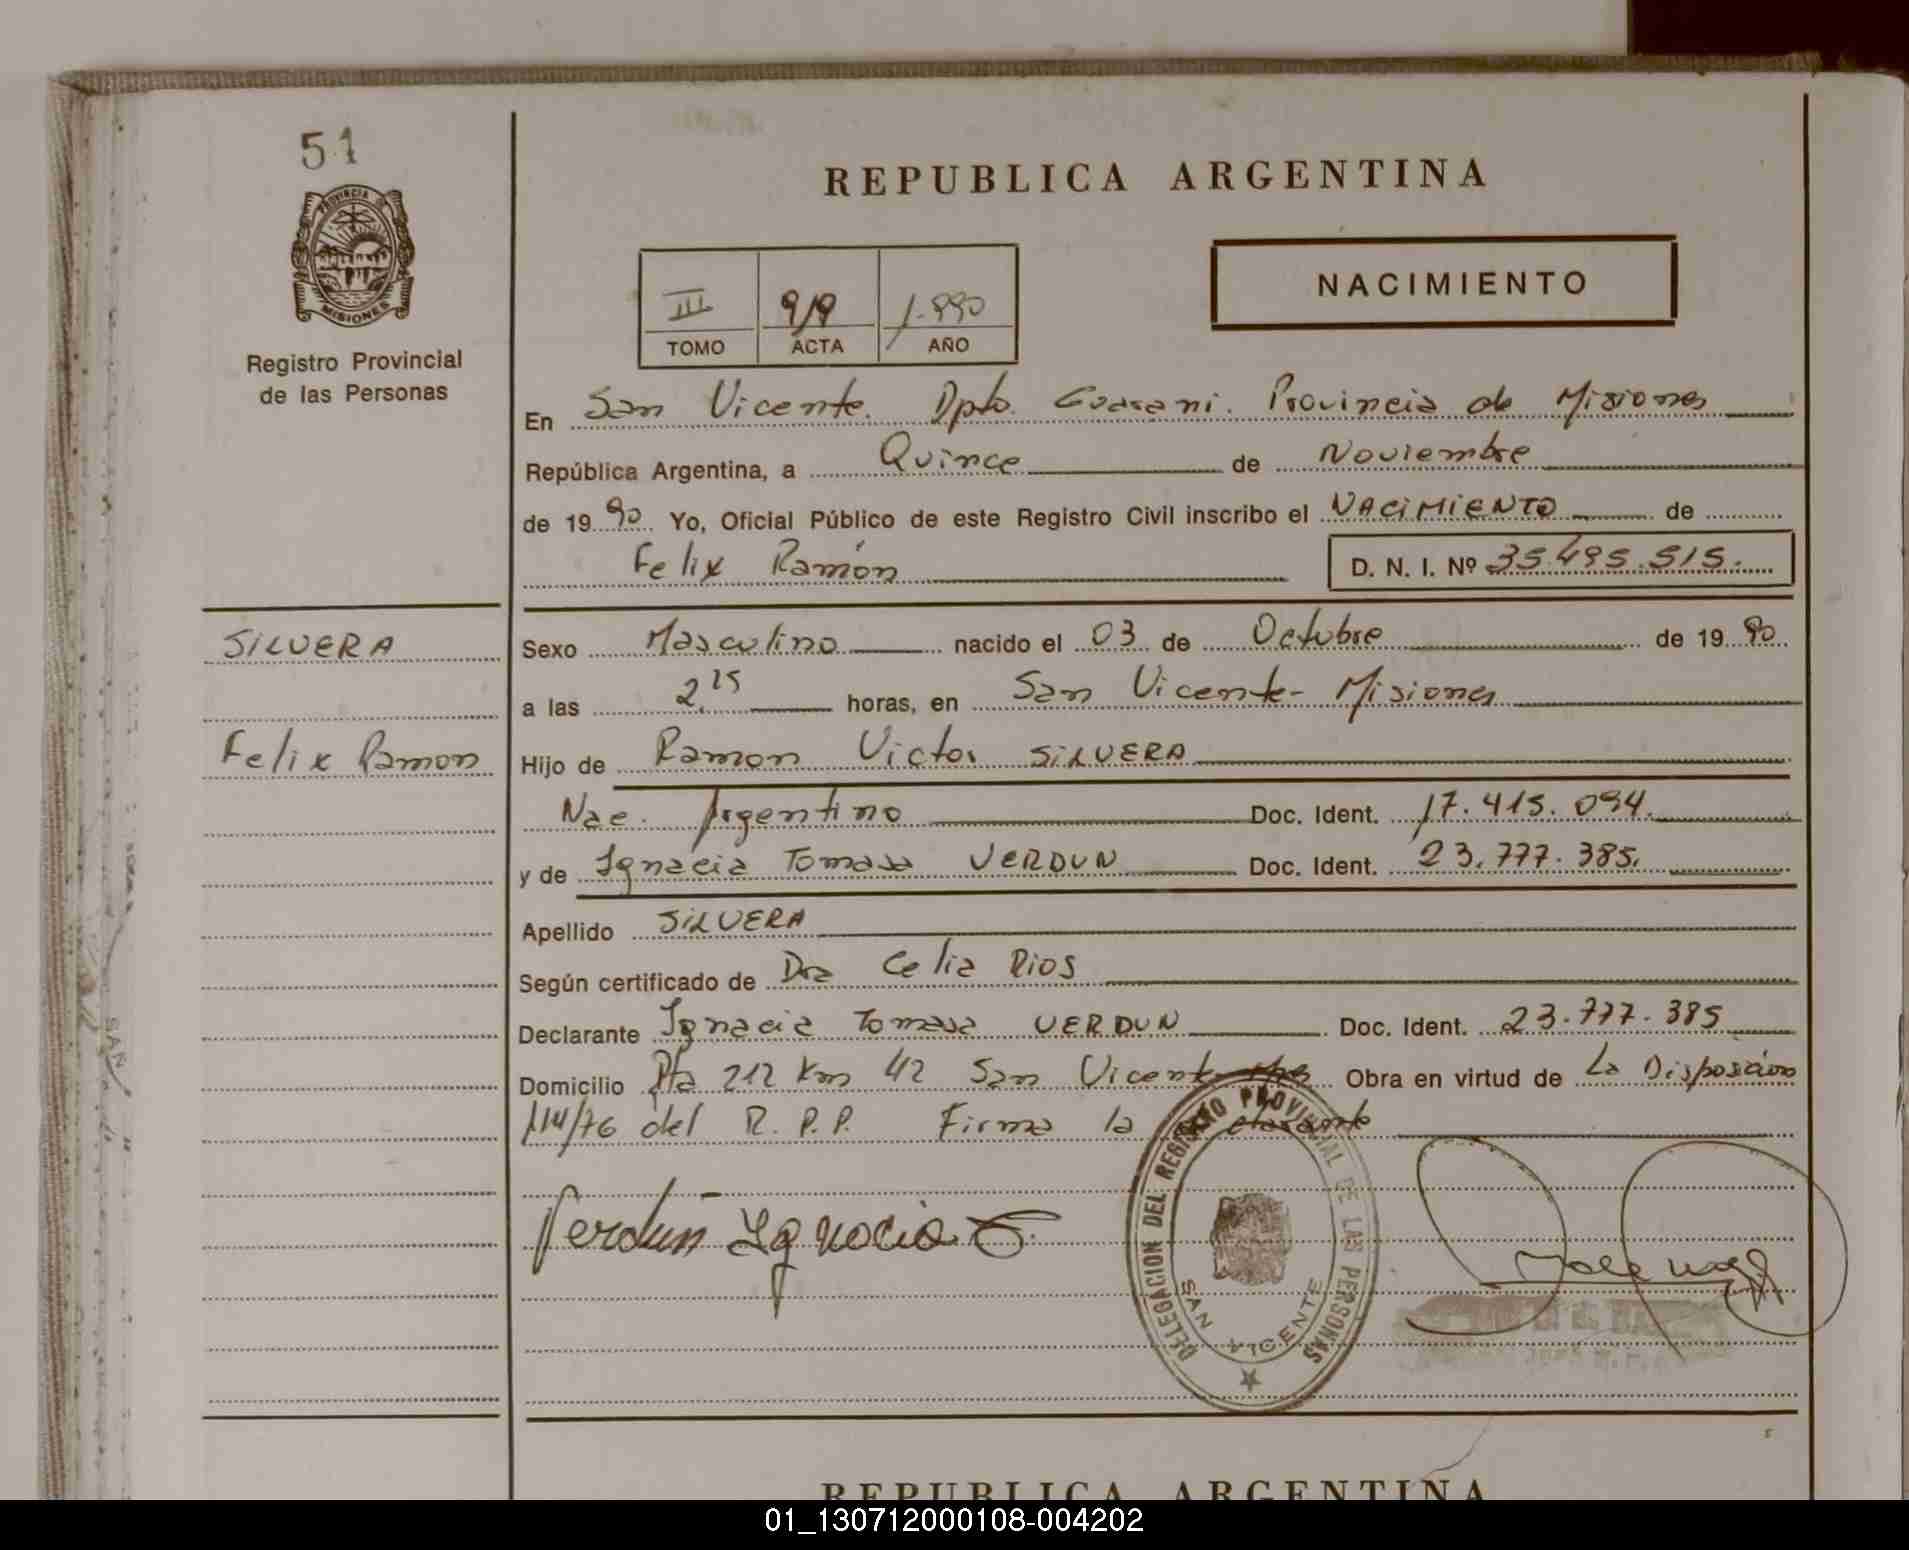 51
PROVINCIA DE
MISIONES
Registro Provincial
de las Personas
REPUBLICA ARGENTINA
III 919 1.990
TOMO ACTA AÑO
NACIMIENTO
En San Vicente. Dpto. Guarani. Provincia de Misiones
República Argentina, a Quince de Noviembre
de 1990 Yo, Oficial Público de este Registro Civil inscribo el NACIMIENTO de
Felix Ramón D. N. I. Nº 35.495.515.
SILVERA
Felix Ramon
Sexo Masculino nacido el 03 de Octubre de 1990
a las 2,15 horas, en San Vicente - Misiones
Hijo de Ramon Victor SILVERA
Nac. Argentino Doc. Ident. 17.415.094.
y de Ignacia Tomasa VERDUN Doc. Ident. 23.777.385.
Apellido SILVERA
Según certificado de Dra Celia Rios
Declarante Ignacia Tomasa VERDUN Doc. Ident. 23.777.385
Domicilio Rta 212 Km 42 San Vicente Obra en virtud de La Disposición
114/76 del R.P.P. Firma la declarante
Verdún Ignacia T.
DELEGACION DEL REGISTRO PROVINCIAL DE LAS PERSONAS
SAN VICENTE
REPUBLICA ARGENTINA
01_130712000108-004202